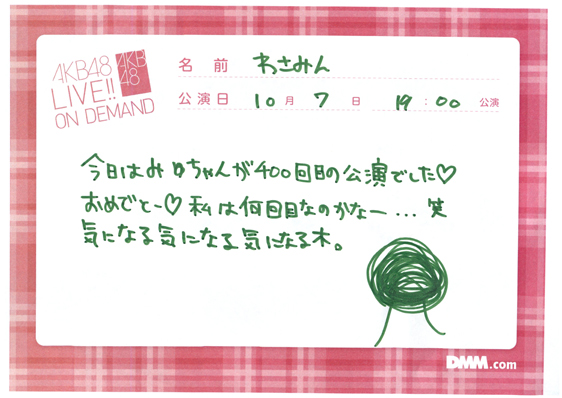 AKB48
LIVE!!
ON DEMAND
AKB
48
名前 わさみん
公演日 10月7日 19:00 公演
今日はみロちゃんが400回目の公演でした♡
おめでと~♡私は何回目なのかなー...笑
気になる気になる気になる木。
DMM.com